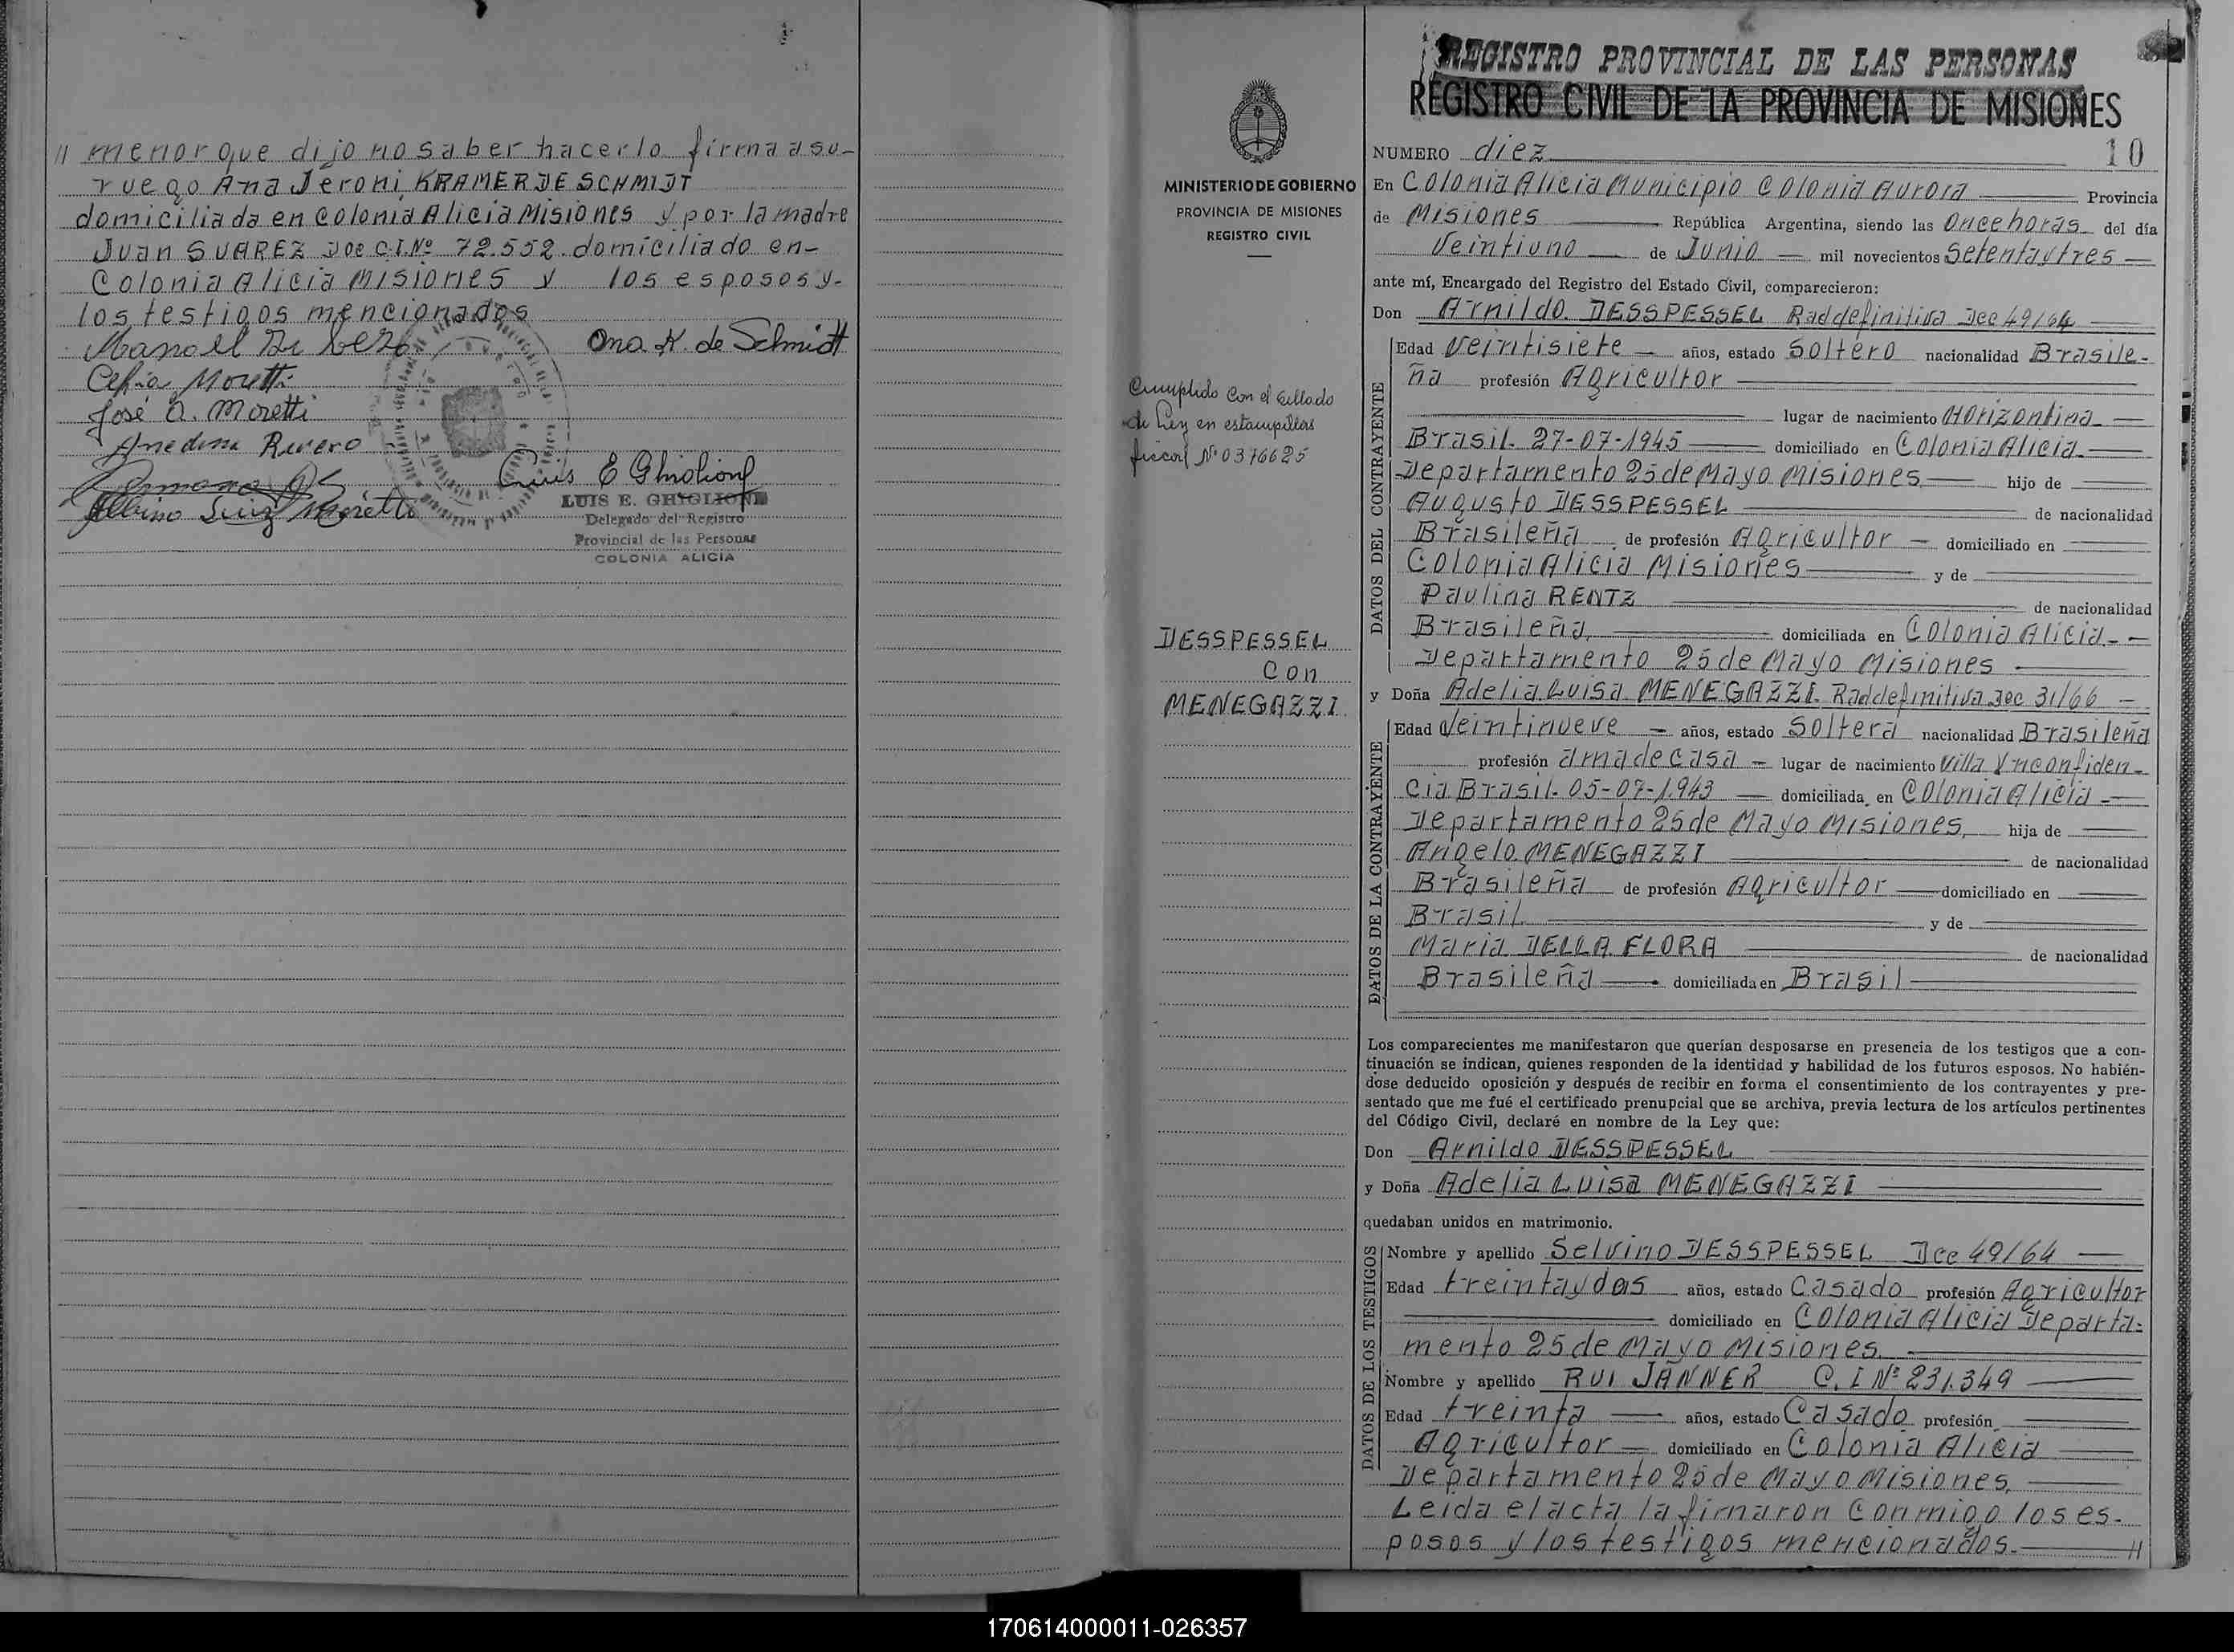 // menor que dijo no saber hacerlo firma a su-
ruego Ana Jeroni KRAMER DE SCHMIDT
domiciliada en Colonia Alicia Misiones y por la madre
Juan SUAREZ Doc C.I. Nº 72.552. domiciliado en-
Colonia Alicia Misiones y los esposos y-
los testigos mencionados
Ana K. de Schmidt
Celia Moretti
José A. Moretti
Anedina Rivero
Luis E Ghiglione
Albino Luiz Moretti
LUIS E. GHIGLIONE
Delegado del Registro
Provincial de las Personas
COLONIA ALICIA
MINISTERIO DE GOBIERNO
PROVINCIA DE MISIONES
REGISTRO CIVIL
Cumplido con el sellado
de Ley en estampillas
fiscal Nº 0376625
DESSPESSEL
con
MENEGAZZI
REGISTRO PROVINCIAL DE LAS PERSONAS
REGISTRO CIVIL DE LA PROVINCIA DE MISIONES
NUMERO diez 10
En Colonia Alicia Municipio Colonia Aurora Provincia
de Misiones República Argentina, siendo las Once horas del día
Veintiuno de Junio mil novecientos Setentaytres
ante mí, Encargado del Registro del Estado Civil, comparecieron:
Don Arnildo DESSPESSEL Rad definitiva Dec 49/64
DATOS DEL CONTRAYENTE
Edad Veintisiete años, estado Soltero nacionalidad Brasile-
ña profesión Agricultor
lugar de nacimiento Horizontina
Brasil- 27-07-1945 domiciliado en Colonia Alicia-
Departamento 25 de Mayo Misiones hijo de
Augusto DESSPESSEL de nacionalidad
Brasileña de profesión Agricultor domiciliado en
Colonia Alicia Misiones y de
Paulina RENTZ de nacionalidad
Brasileña domiciliada en Colonia Alicia-
Departamento 25 de Mayo Misiones
y Doña Adelia Luisa MENEGAZZI Rad definitiva Dec 31/66
DATOS DE LA CONTRAYENTE
Edad Veintinueve años, estado Soltera nacionalidad Brasileña
profesión ama de casa lugar de nacimiento Villa Ynconfiden-
cia Brasil- 05-07-1943 domiciliada en Colonia Alicia
Departamento 25 de Mayo Misiones hija de
Angelo MENEGAZZI de nacionalidad
Brasileña de profesión Agricultor domiciliado en
Brasil y de
Maria DELLA FLORA de nacionalidad
Brasileña domiciliada en Brasil
Los comparecientes me manifestaron que querían desposarse en presencia de los testigos que a con-
tinuación se indican, quienes responden de la identidad y habilidad de los futuros esposos. No habién-
dose deducido oposición y después de recibir en forma el consentimiento de los contrayentes y pre-
sentado que me fué el certificado prenupcial que se archiva, previa lectura de los artículos pertinentes
del Código Civil, declaré en nombre de la Ley que:
Don Arnildo DESSPESSEL
y Doña Adelia Luisa MENEGAZZI
quedaban unidos en matrimonio.
DATOS DE LOS TESTIGOS
Nombre y apellido Selvino DESSPESSEL Dec 49/64
Edad treintaydos años, estado Casado profesión Agricultor
domiciliado en Colonia Alicia Departa-
mento 25 de Mayo Misiones
Nombre y apellido RUI JANNER C.I Nº 231.349
Edad treinta años, estado Casado profesión
Agricultor domiciliado en Colonia Alicia
Departamento 25 de Mayo Misiones
Leida el acta la firmaron conmigo los es-
posos y los testigos mencionados. //
170614000011-026357